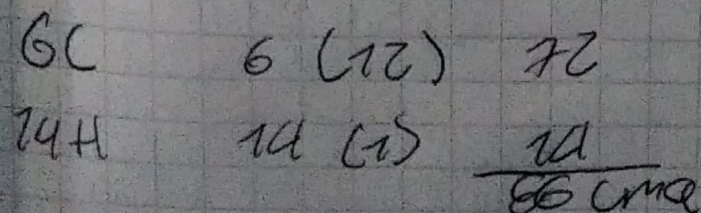 6C 6 (12) 72
14H 14 (1) 14
86 uma